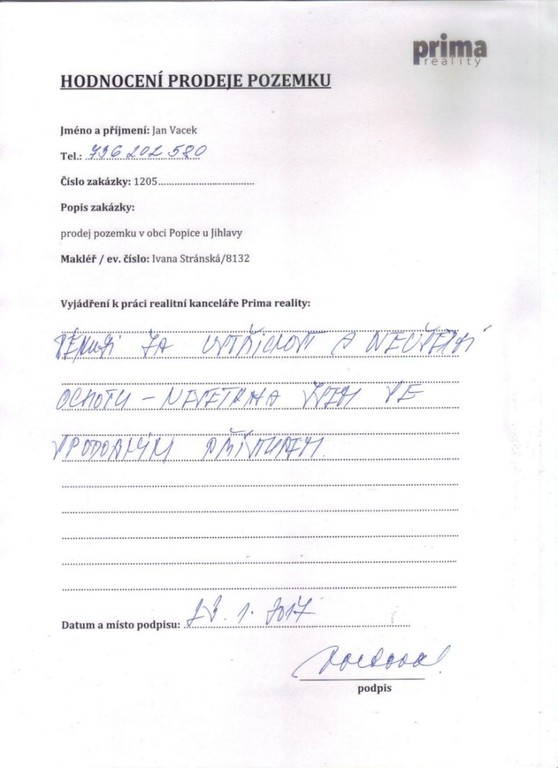 prima
reality
HODNOCENÍ PRODEJE POZEMKU
Jméno a příjmení: Jan Vacek
Tel.: 736 202 580
Číslo zakázky: 1205
Popis zakázky:
prodej pozemku v obci Popice u Jihlavy
Makléř / ev. číslo: Ivana Stránská/8132
Vyjádření k práci realitní kanceláře Prima reality:
DĚKUJI ZA VSTŘÍCNOST A
OCHOTU –
PŘÍSTUPEM.
Datum a místo podpisu: 23. 1. 2017
podpis